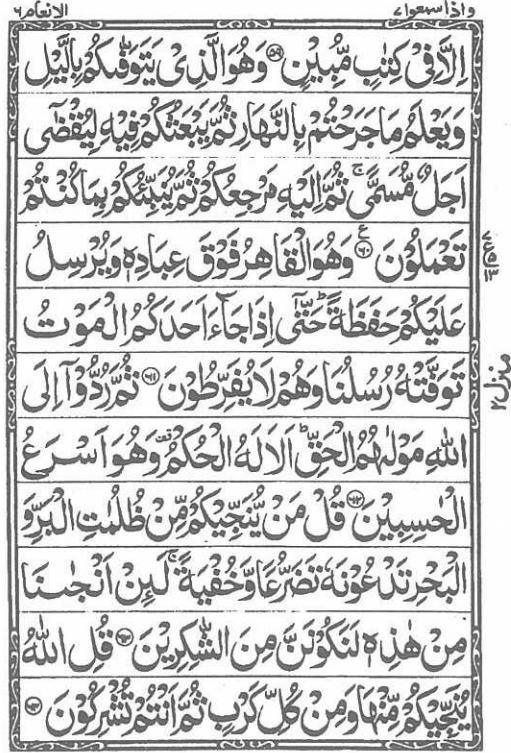 واذا سمعوا ۷
الانعام ۶
اِلَّا فِیْ كِتٰبٍ مُّبِیْنٍ ﴿۵۹﴾ وَهُوَ الَّذِیْ یَتَوَفّٰىكُمْ بِالَّیْلِ
وَیَعْلَمُ مَا جَرَحْتُمْ بِالنَّهَارِ ثُمَّ یَبْعَثُكُمْ فِیْهِ لِیُقْضٰۤى
اَجَلٌ مُّسَمًّىۚ ثُمَّ اِلَیْهِ مَرْجِعُكُمْ ثُمَّ یُنَبِّئُكُمْ بِمَا كُنْتُمْ
تَعْمَلُوْنَ ﴿۶۰﴾ ع وَهُوَ الْقَاهِرُ فَوْقَ عِبَادِهٖ وَیُرْسِلُ
عَلَیْكُمْ حَفَظَةًؕ حَتّٰۤى اِذَا جَآءَ اَحَدَكُمُ الْمَوْتُ
تَوَفَّتْهُ رُسُلُنَا وَهُمْ لَا یُفَرِّطُوْنَ ﴿۶۱﴾ ثُمَّ رُدُّوْۤا اِلَى
اللّٰهِ مَوْلٰىهُمُ الْحَقِّؕ اَلَا لَهُ الْحُكْمُ۫ وَهُوَ اَسْرَعُ
الْحٰسِبِیْنَ ﴿۶۲﴾ قُلْ مَنْ یُّنَجِّیْكُمْ مِّنْ ظُلُمٰتِ الْبَرِّ وَ
الْبَحْرِ تَدْعُوْنَهٗ تَضَرُّعًا وَّخُفْیَةًۚ لَىِٕنْ اَنْجٰىنَا
مِنْ هٰذِهٖ لَنَكُوْنَنَّ مِنَ الشّٰكِرِیْنَ ﴿۶۳﴾ قُلِ اللّٰهُ
یُنَجِّیْكُمْ مِّنْهَا وَمِنْ كُلِّ كَرْبٍ ثُمَّ اَنْتُمْ تُشْرِكُوْنَ ﴿۶۴﴾
منزل ۲